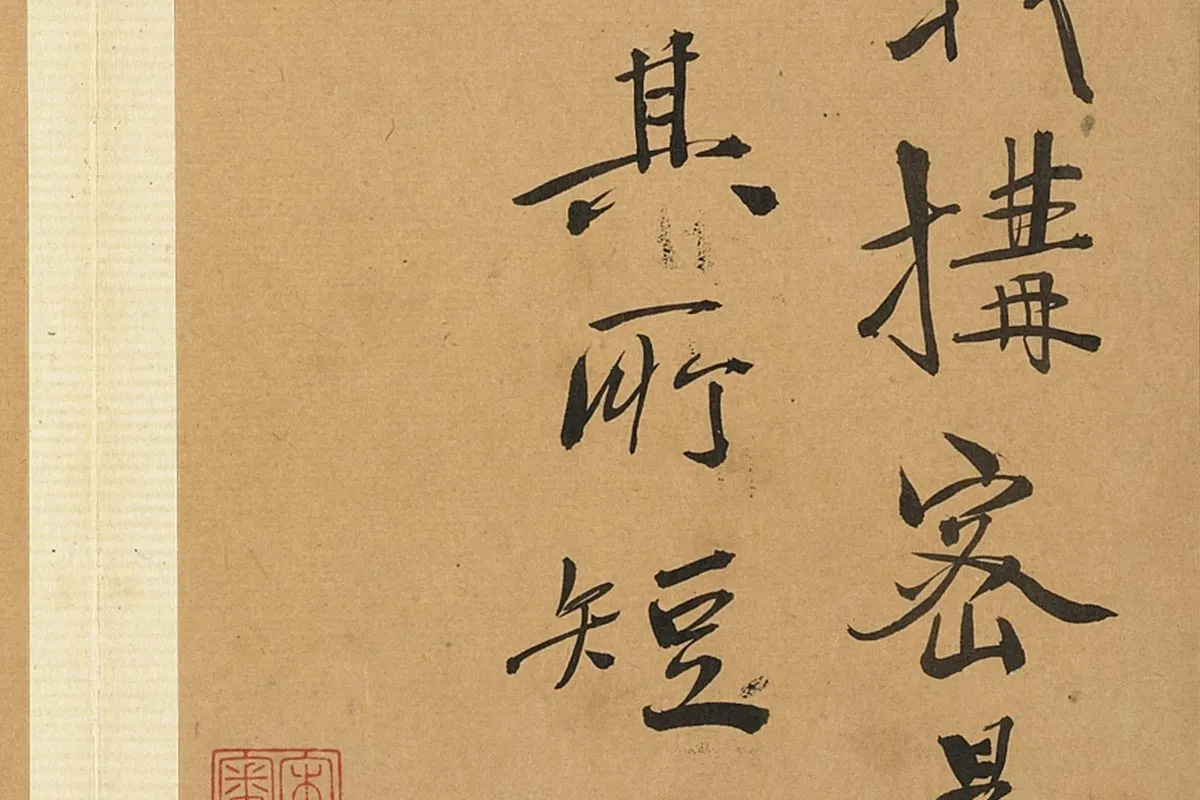 搆密是
其所短